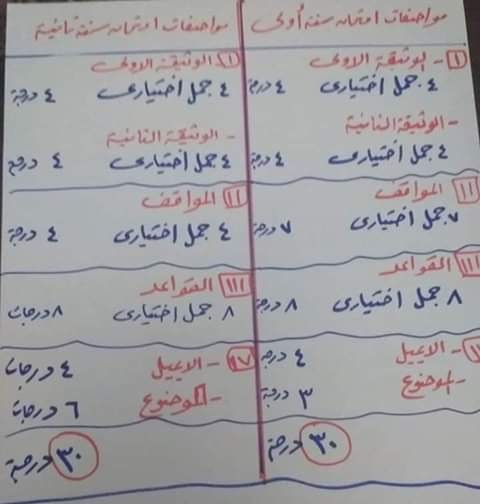 مواصفات امتحان سنة أولى
١ - الوثيقة الاولى
٤ جمل اختيارى ٤ درجة
- الوثيقة الثانية
٤ جمل اختيارى ٤ درجة
II المواقف
٧ جمل اختيارى ٧ درجة
III القواعد
٨ جمل اختيارى ٨ درجة
- الايميل ٤ درجة
- الموضوع ٣ درجة
٣٠ درجة
مواصفات امتحان سنة ثانية
١ الوثيقة الاولى
٤ جمل اختيارى ٤ درجة
- الوثيقة الثانية
٤ جمل اختيارى ٤ درجة
II المواقف
٤ جمل اختيارى ٤ درجة
III القواعد
٨ جمل اختيارى ٨ درجات
IV - الايميل ٤ درجات
- الموضوع ٦ درجات
٣٠ درجة